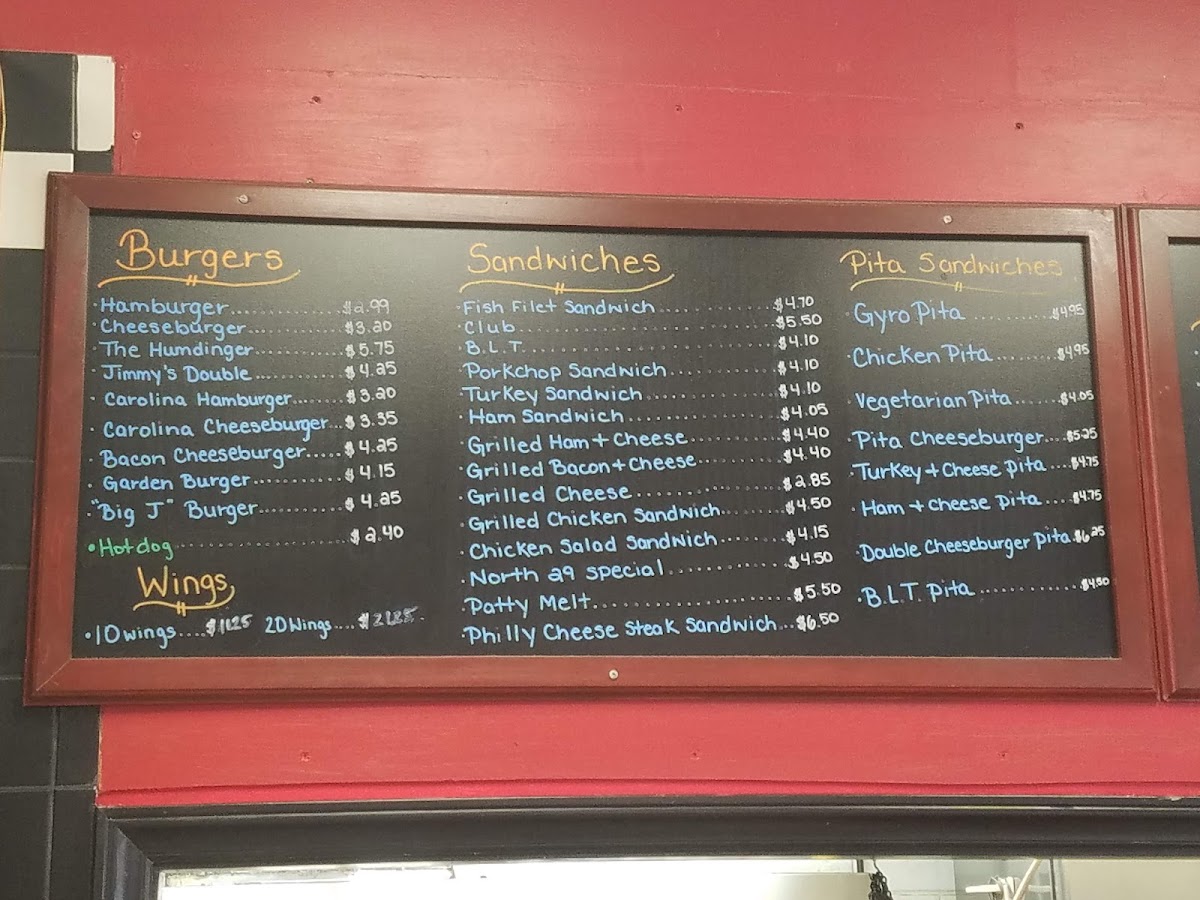 Burgers
·Hamburger.............$2.99
·Cheeseburger.............$3.20
·The Humdinger.............$5.75
·Jimmy's Double.............$4.25
·Carolina Hamburger.............$3.20
·Carolina Cheeseburger...$3.35
·Bacon Cheeseburger.....$4.25
·Garden Burger.............$4.15
·"Big J" Burger.............$4.25
•Hotdog.............$2.40
Wings
·10 wings....$11.25 20 Wings....
Sandwiches
·Fish Filet Sandwich.............$4.70
·Club.............$5.50
·B.L.T.............$4.10
·Porkchop Sandwich.............$4.10
·Turkey Sandwich.............$4.10
·Ham Sandwich.............$4.05
·Grilled Ham + Cheese.............$4.40
·Grilled Bacon + Cheese.............$4.40
·Grilled Cheese.............$2.85
·Grilled Chicken Sandwich.............$4.50
·Chicken Salad Sandwich.............$4.15
·North 29 Special.............$4.50
·Patty Melt.............$5.50
·Philly Cheese Steak Sandwich...$6.50
Pita Sandwiches
·Gyro Pita.............$4.95
·Chicken Pita.............$4.95
·Vegetarian Pita.......$4.05
·Pita Cheeseburger....$5.25
·Turkey + Cheese Pita....$4.75
·Ham + Cheese Pita.....$4.75
·Double Cheeseburger Pita.$6.25
·B.L.T. Pita.............